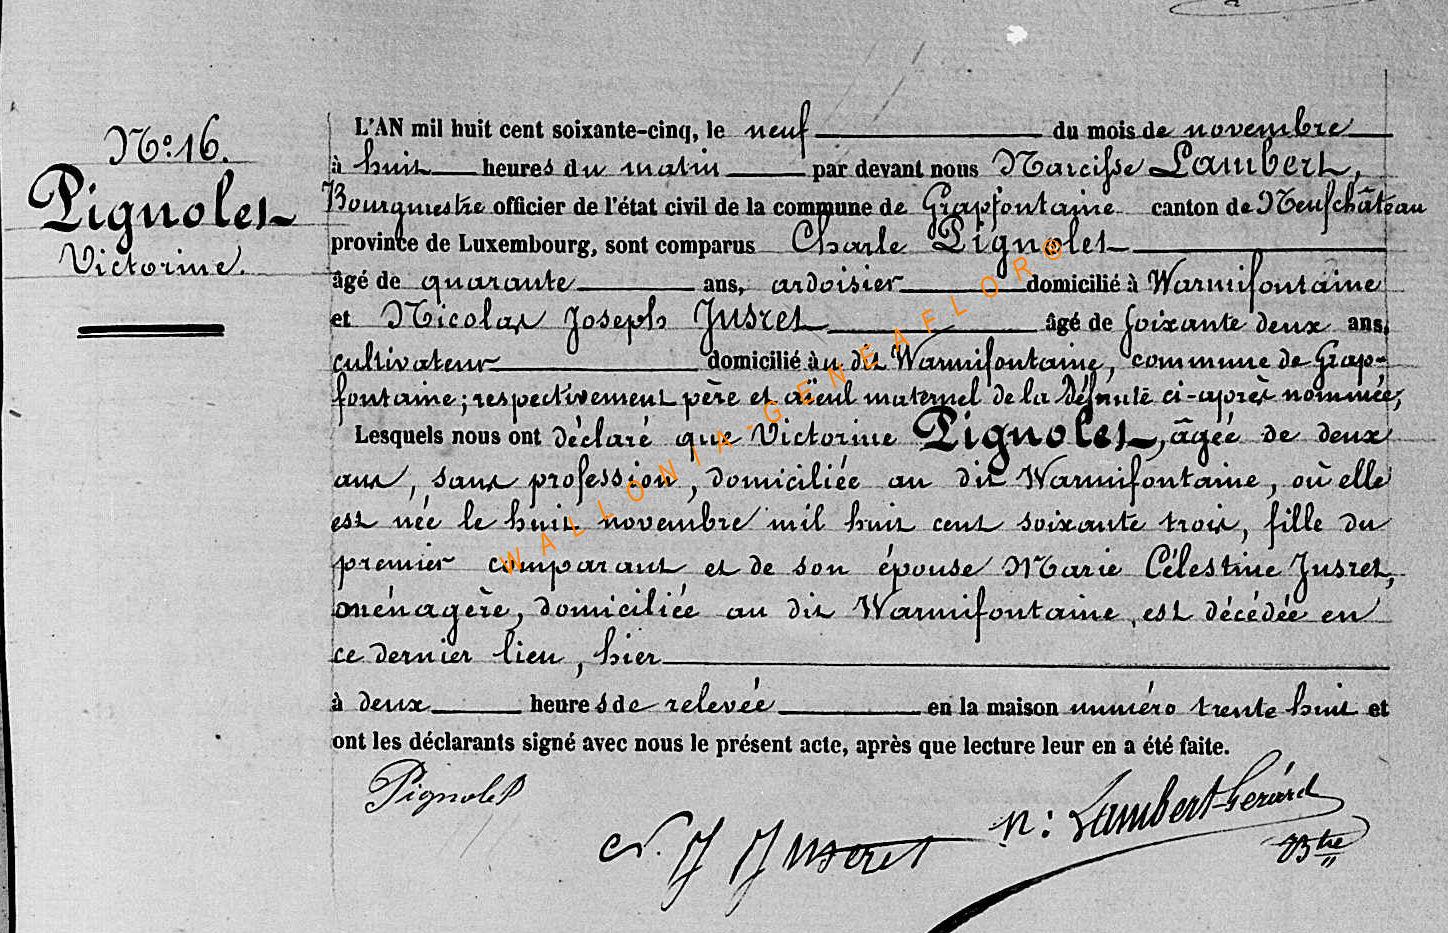 N° 16.
Pignolet
Victorine.
L'AN mil huit cent soixante-cinq, le neuf du mois de novembre
à huit heures du matin par devant nous Narcisse Lambert,
Bourgmestre officier de l'état civil de la commune de Grapfontaine canton de Neufchâteau
province de Luxembourg, sont comparus Charle Pignolet
âgé de quarante ans, ardoisier domicilié à Warmifontaine
et Nicolas Joseph Jusret âgé de soixante deux ans,
cultivateur domicilié au dit Warmifontaine, commune de Grap-
fontaine; respectivement père et aïeul maternel de la défunte ci-après nommée;
Lesquels nous ont déclaré que Victorine Pignolet, âgée de deux
ans, sans profession, domiciliée au dit Warmifontaine, où elle
est née le huit novembre mil huit cent soixante trois, fille du
premier comparant et de son épouse Marie Célestine Jusret,
ménagère, domiciliée au dit Warmifontaine, est décédée en
ce dernier lieu, hier
à deux heures de relevée en la maison numéro trente huit et
ont les déclarants signé avec nous le présent acte, après que lecture leur en a été faite.
Pignolet
N. J Juseret
N: Lambert-Gérard
Btre
WALLONIA-GENEAFLOR©